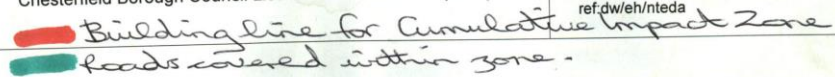 Chesterfield Borough Council
ref:dw/eh/nteda
Building line for Cumulative Impact Zone
Roads covered within zone.